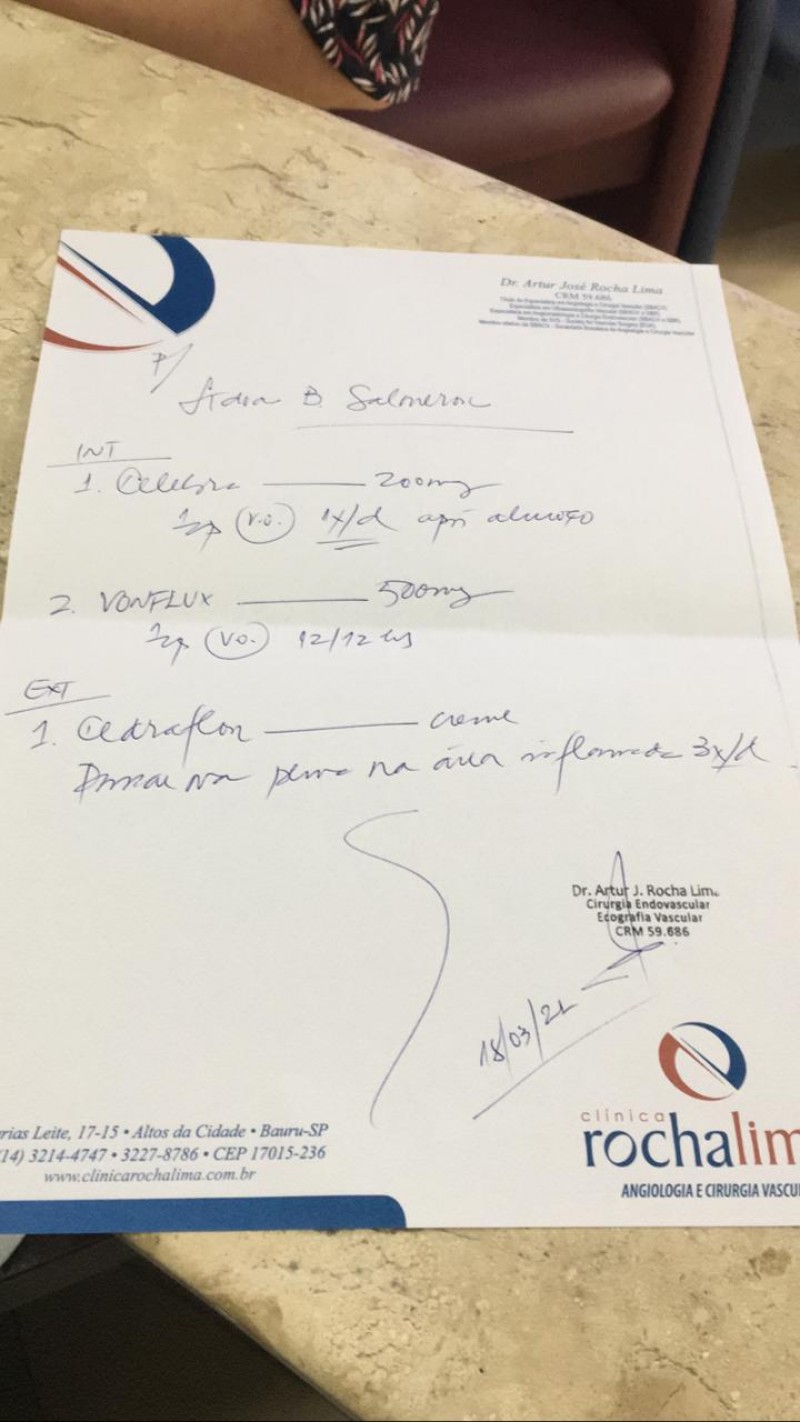 Dr. Artur José Rocha Lima
CRM 59.686
P/
B. Salmeron
INT
1. Celebra 200mg
1cp (V.O.) 1x/d após almoço
2. VONFLUX 500mg
1cp (VO.) 12/12 hs
EXT
1. Cedraflon creme
Passar na perna na área inflamada 3x/d
Dr. Artur J. Rocha Lim
Cirurgia Endovascular
Ecografia Vascular
CRM 59.686
18/03/21
rias Leite, 17-15 • Altos da Cidade • Bauru-SP
14) 3214-4747 • 3227-8786 • CEP 17015-236
www.clinicarochalima.com.br
clínica
rochalim
ANGIOLOGIA E CIRURGIA VASCU